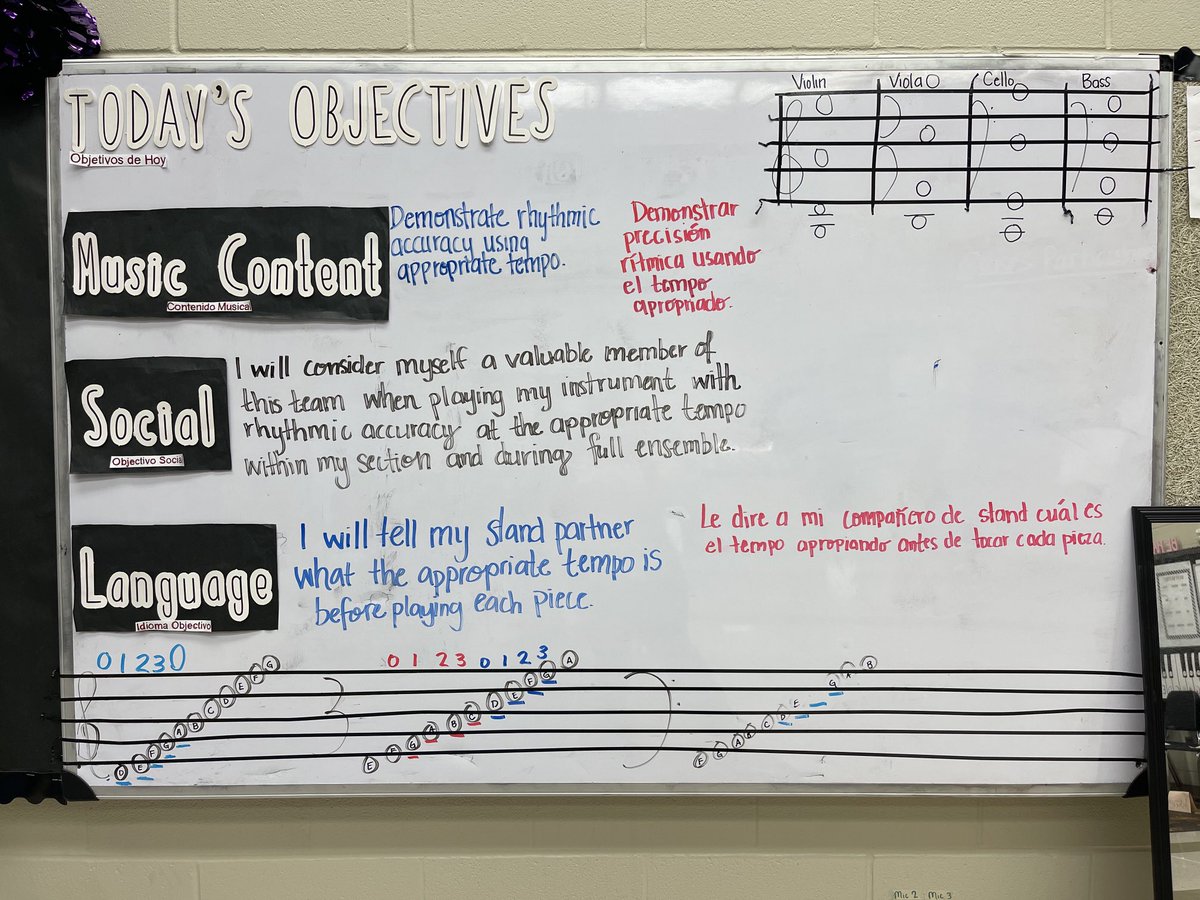 TODAY'S OBJECTIVES
Objetivos de Hoy
Violin Viola Cello Bass
Music Content
Contenido Musica
Demonstrate rhythmic
accuracy using
appropriate tempo.
Demonstrar
precisión
rítmica usando
el tempo
apropriado.
Social
Objectivo Socia
I will consider myself a valuable member of
this team when playing my instrument with
rhythmic accuracy at the appropriate tempo
within my section and during full ensemble.
Language
Idioma Objectivo
I will tell my stand partner
what the appropriate tempo is
before playing each piece.
Le dire a mi compañero de stand cuál es
el tempo apropiando antes de tocar cada pieza.
0 1 2 3 0
0 1 2 3 0 1 2 3
D E F G A B C D E F G
E F G A B C D E F G A
F G A B C D E G A B
Mic 2 Mic 3